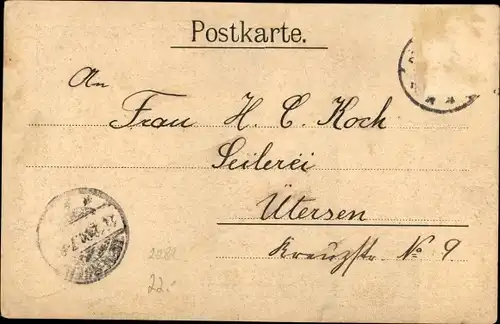 Postkarte.
An
Frau H. C. Koch
Seilerei
Ütersen
Kreuzstr. No 9
22.-